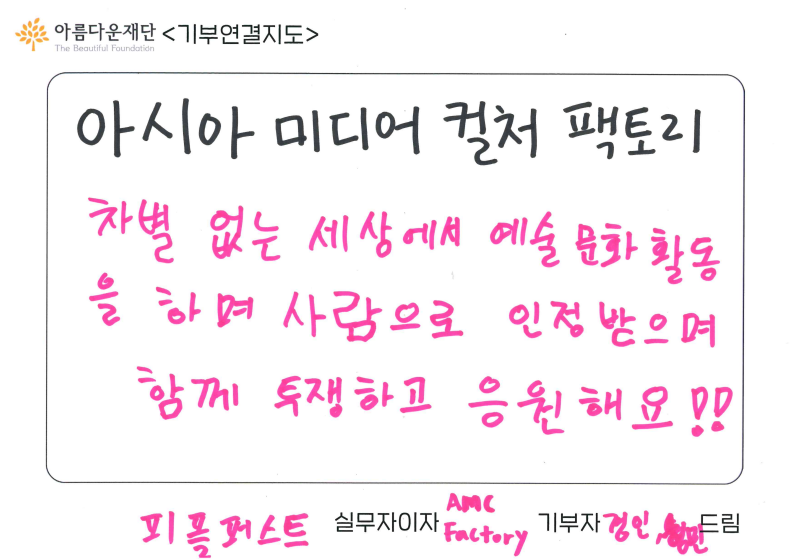 아름다운재단 <기부연결지도>
The Beautiful Foundation
아시아 미디어 컬처 팩토리
차별 없는 세상에서 예술 문화 활동
을 하며 사람으로 인정 받으며
함께 투쟁하고 응원해요!!
피플퍼스트 실무자이자 AMC Factory 기부자 경인, 드림